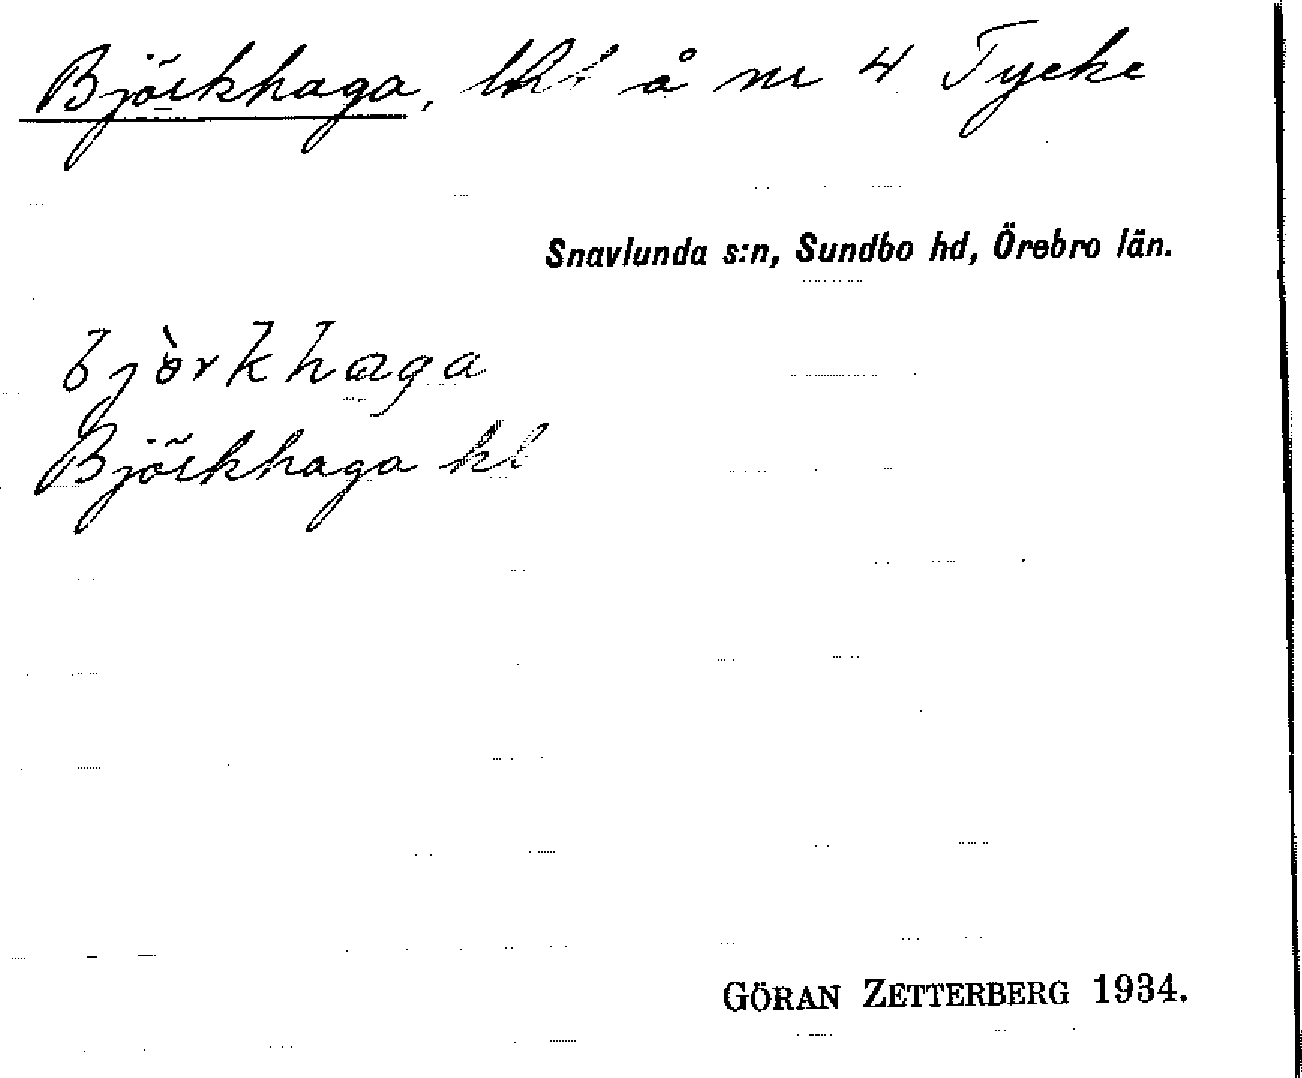 Björkhaga, å nr 4 Tycke
Snavlunda s:n, Sundbo hd, Örebro län.
bjòrkhaga
Björkhaga kl
GÖRAN ZETTERBERG 1934.